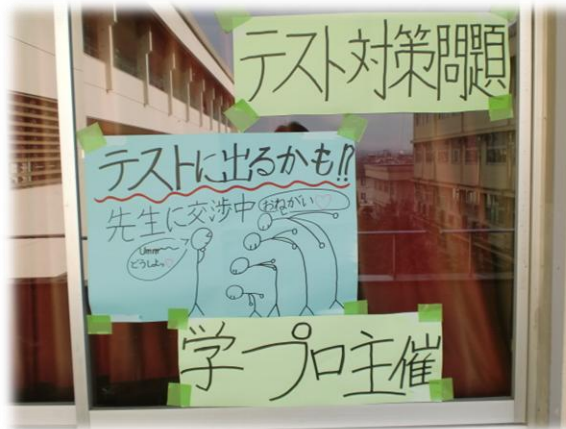 テスト対策問題
テストに出るかも!!
先生に交渉中
おねがい♡
Umm〜〜
どうしよっ♡
学プロ主催